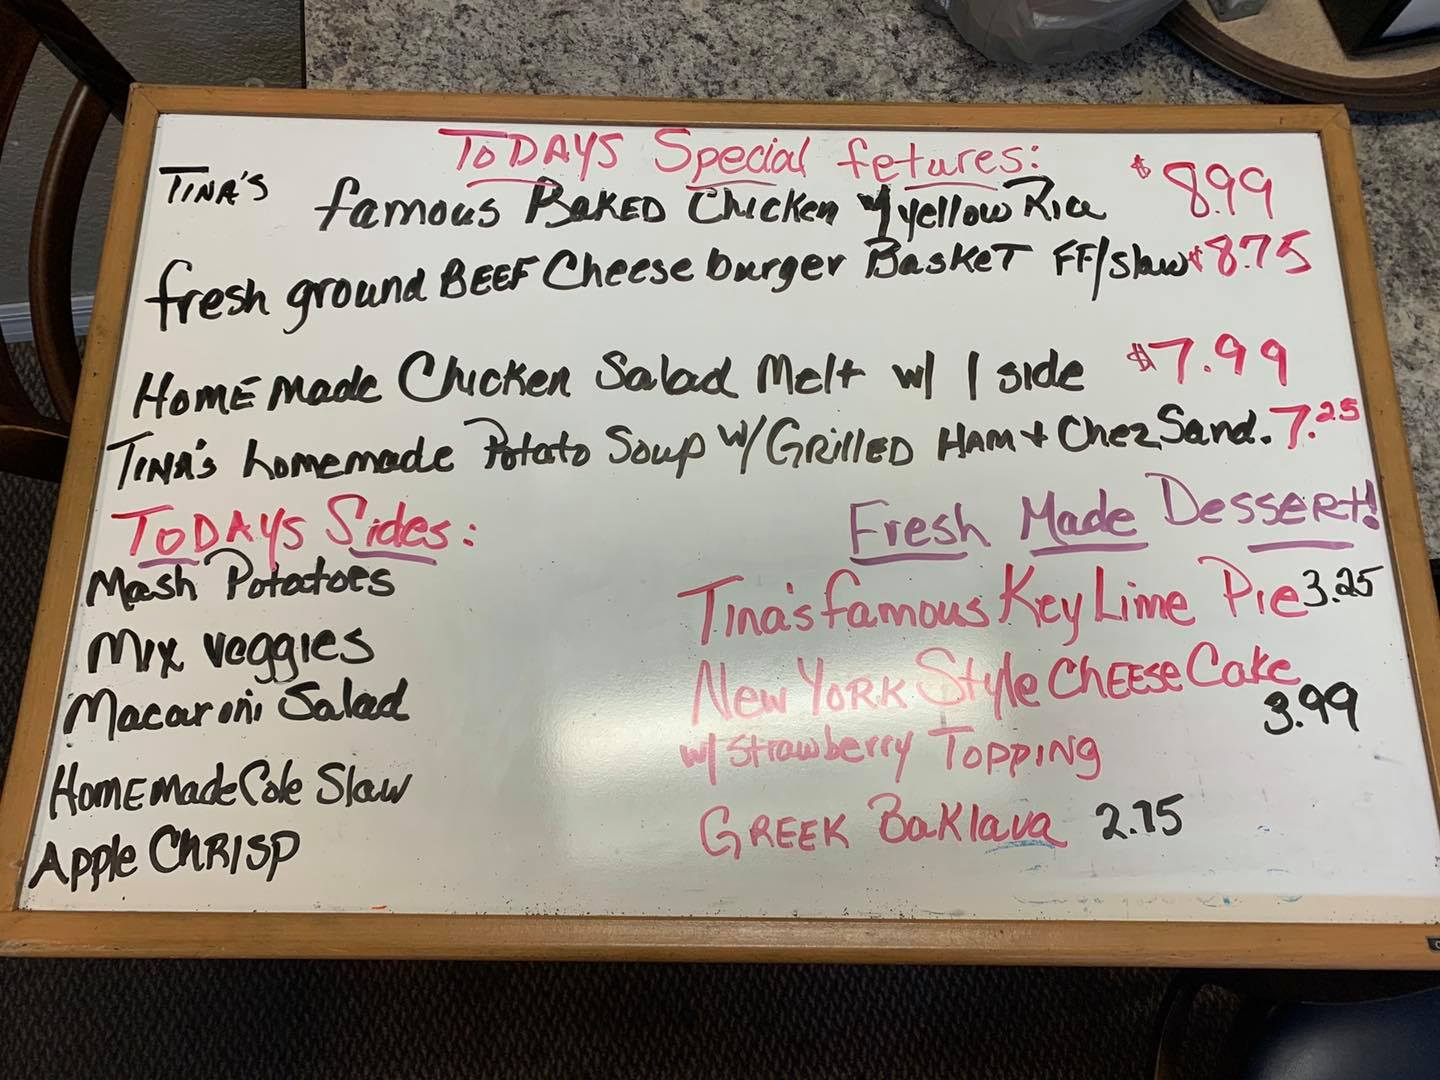 TODAYS Special fetures:
TINA'S famous BAKED Chicken w/ yellow Rice $8.99
fresh ground BEEF Cheese burger BasKeT FF/slaw $8.75
HOMEmade Chicken Salad Melt w/ 1 side $7.99
TINA's homemade Potato Soup w/ GRILLED HAM + Chez Sand. 7.25
TODAYS Sides:
Mash Potatoes
Mix veggies
Macaroni Salad
HomEmade Cole Slaw
Apple CHRISP
Fresh Made Dessert!
Tina's famous Key Lime Pie 3.25
New YORK Style CHEESE Cake
3.99
w/ strawberry Topping
GREEK Baklava 2.75